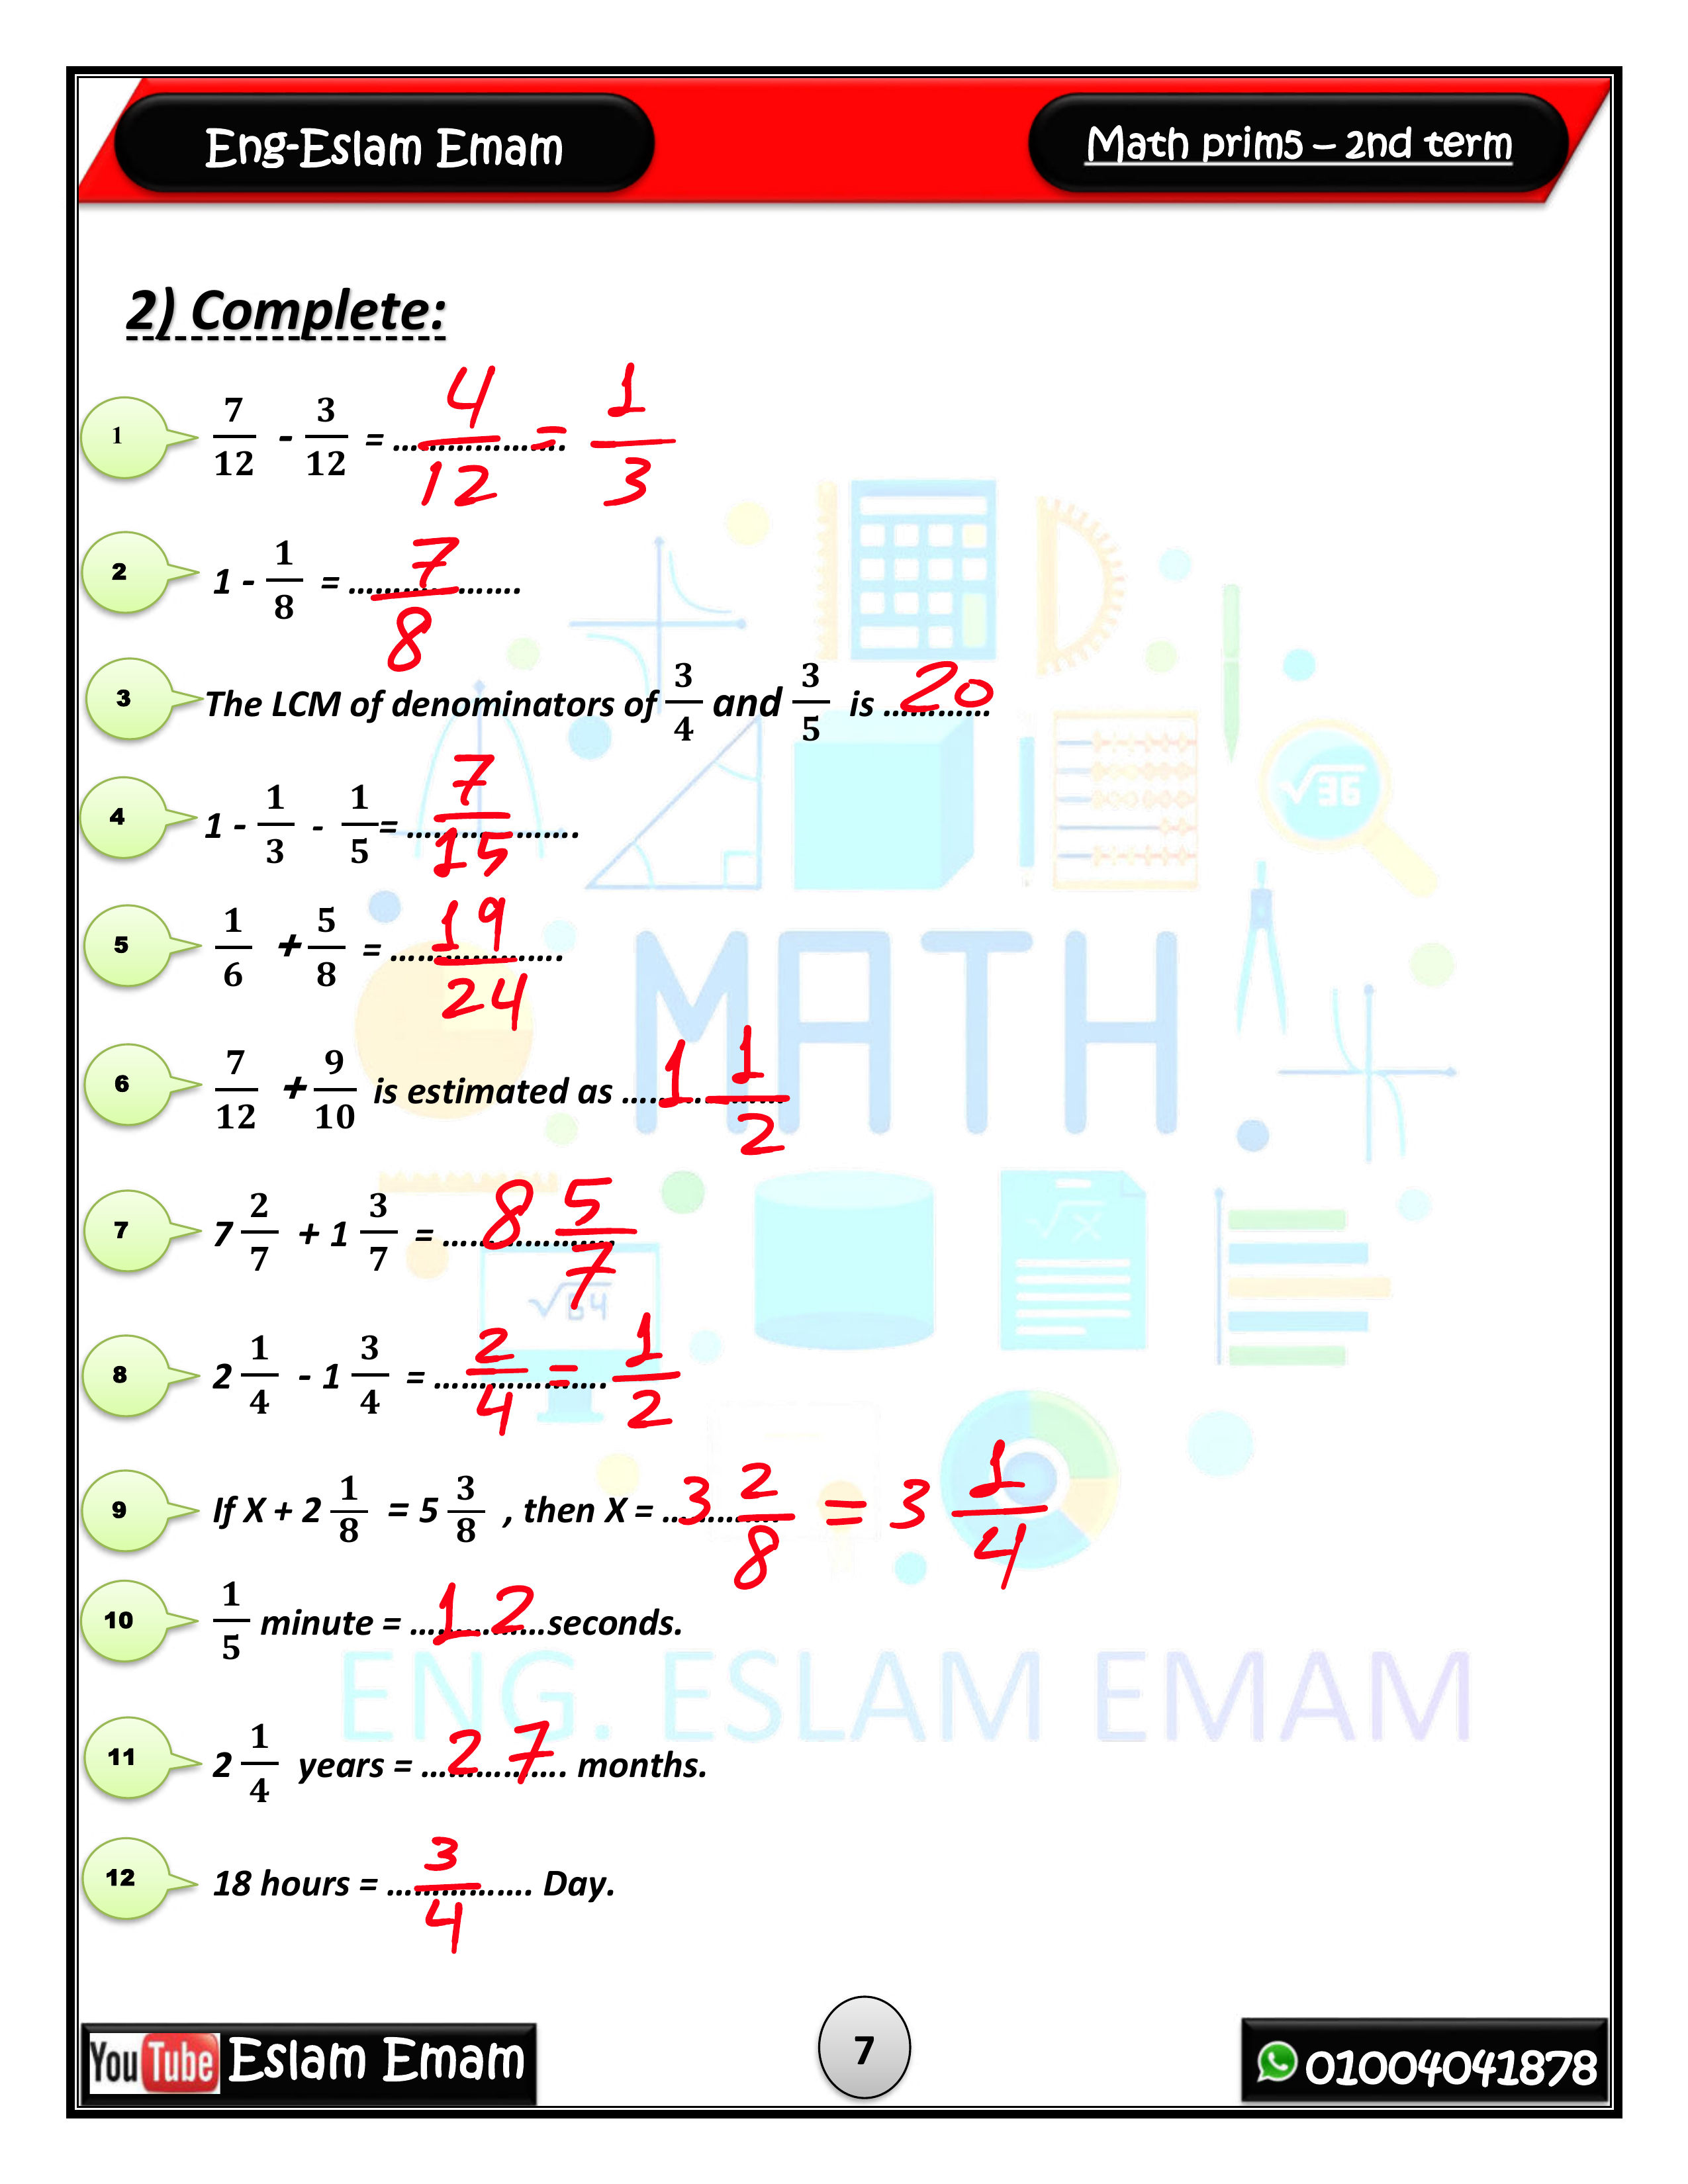 Eng-Eslam Emam
Math prim5 – 2nd term
2) Complete:
1 7/12 - 3/12 = ……………….. 4/12 = 1/3
2 1 - 1/8 = ………………. 7/8
3 The LCM of denominators of 3/4 and 3/5 is ………… 20
4 1 - 1/3 - 1/5 = ………………. 7/15
5 1/6 + 5/8 = ………………. 19/24
6 7/12 + 9/10 is estimated as ……………… 1 1/2
7 7 2/7 + 1 3/7 = ………………. 8 5/7
8 2 1/4 - 1 3/4 = ………………. 2/4 = 1/2
9 If X + 2 1/8 = 5 3/8 , then X = ………….. 3 2/8 = 3 1/4
10 1/5 minute = …………… 12 seconds.
11 2 1/4 years = ……………. 27 months.
12 18 hours = ……………. 3/4 Day.
√36
MATH
√x
√64
ENG. ESLAM EMAM
YouTube Eslam Emam
7
01004041878